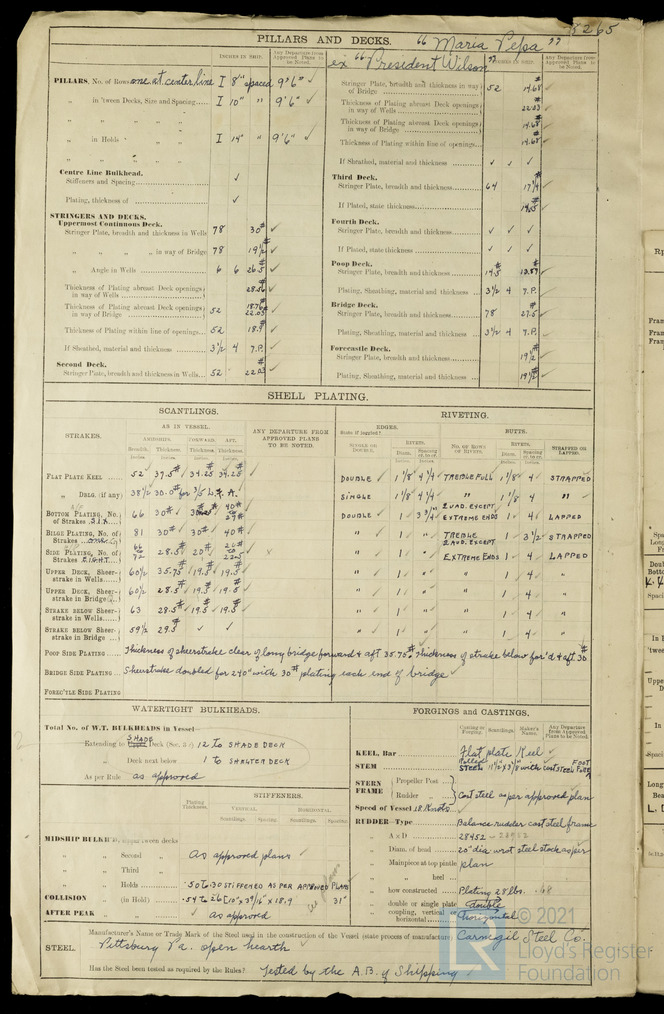 8265
PILLARS AND DECKS. "Maria Pepa"
ex "President Wilson"
INCHES IN SHIP.
Any Departure from Approved Plans to be Noted.
PILLARS, No. of Rows one at center line I 8" spaced 9'6" ✓
" in 'tween Decks, Size and Spacing I 10" " 9'6" ✓
" " " "
" in Holds " " I 14" " 9'6" ✓
" " " "
Centre Line Bulkhead.
Stiffeners and Spacing ✓
Plating, thickness of ✓
STRINGERS AND DECKS.
Uppermost Continuous Deck.
Stringer Plate, breadth and thickness in Wells 78 30# ✓
" " " " in way of Bridge 78 19½# ✓
" Angle in Wells 6 6 26.5# ✓
Thickness of Plating abreast Deck openings in way of Wells 28.56# ✓
Thickness of Plating abreast Deck openings in way of Bridge 52 18.76# 22.03 ✓
Thickness of Plating within line of openings 52 18.9# ✓
If Sheathed, material and thickness 3½ 4 Y.P. ✓
Second Deck.
Stringer Plate, breadth and thickness in Wells 52 22.03# ✓
Stringer Plate, breadth and thickness in way of Bridge 52 14.68# ✓
Thickness of Plating abreast Deck openings in way of Wells 22.03# ✓
Thickness of Plating abreast Deck openings in way of Bridge 14.68# ✓
Thickness of Plating within line of openings 14.68# ✓
If Sheathed, material and thickness ✓ ✓ ✓
Third Deck.
Stringer Plate, breadth and thickness 64 17¼# ✓
If Plated, state thickness ✓
Fourth Deck.
Stringer Plate, breadth and thickness ✓ ✓ ✓
If Plated, state thickness ✓ ✓ ✓
Poop Deck.
Stringer Plate, breadth and thickness ✓
Plating, Sheathing, material and thickness 3½ 4 Y.P. ✓
Bridge Deck.
Stringer Plate, breadth and thickness 78 27.5# ✓
Plating, Sheathing, material and thickness 3½ 4 Y.P. ✓
Forecastle Deck.
Stringer Plate, breadth and thickness 19½# ✓
Plating, Sheathing, material and thickness 19½# ✓
SHELL PLATING.
SCANTLINGS.
RIVETING.
STRAKES.
AS IN VESSEL.
AMIDSHIPS. FORWARD. AFT.
Breadth. Thickness. Thickness. Thickness.
ANY DEPARTURE FROM APPROVED PLANS TO BE NOTED.
EDGES.
State if joggled?
SINGLE OR DOUBLE.
RIVETS.
Diam. Spacing cr. to cr.
BUTTS.
NO. OF ROWS OF RIVETS.
RIVETS.
Diam. Spacing cr. to cr.
STRAPPED OR LAPPED.
FLAT PLATE KEEL 52 37.5# 34.25# 34.25# DOUBLE 1⅛ 4¼ TREBLE FULL 1⅛ 4 STRAPPED
" DBLG. (if any) 38½ 30.0# for 3/5 L. SINGLE 1⅛ 4¼ " 1⅛ 4 "
BOTTOM PLATING, No. of Strakes SIX 66 30# 40# to 29# DOUBLE 1 3¾ QUAD. EXCEPT EXTREME ENDS 1 4 LAPPED
BILGE PLATING, No. of Strakes 81 30# 30# 40# " 1 " TREBLE 1 3½ STRAPPED
SIDE PLATING, No. of Strakes EIGHT 28.5# 20# " 1 " QUAD. EXCEPT EXTREME ENDS 1 4 LAPPED
UPPER DECK, Sheerstrake in Wells 60½ 35.75# 19.5# 19.5# " 1 " " 1 4 "
UPPER DECK, Sheerstrake in Bridge 60½ 28.5# 19.5# 19.5# " 1 " " 1 4 "
STRAKE BELOW Sheerstrake in Wells 63 28.5# 19.5# 19.5# " 1 " " 1 4 "
STRAKE BELOW Sheerstrake in Bridge 59½ 29.5# ✓ ✓ " 1 " " 1 4 "
POOP SIDE PLATING Thickness of sheerstrake clear of long bridge forward & aft 35.75#. Thickness of strake below for'd & aft 30#
BRIDGE SIDE PLATING Sheerstrake doubled for 240" with 30# plating each end of bridge
FOREC'TLE SIDE PLATING
WATERTIGHT BULKHEADS.
Total No. of W.T. BULKHEADS in Vessel
Extending to SHADE Deck 12 to SHADE DECK
" Deck next below 1 to SHELTER DECK
As per Rule as approved
Plating Thickness.
STIFFENERS.
VERTICAL. HORIZONTAL.
Scantlings. Spacing. Scantlings. Spacing.
MIDSHIP BULKH'D, Upper tween decks
" " Second " As approved plans
" " Third "
" " Holds .50 to .30 STIFFENED AS PER APPROVED PLANS
COLLISION " (in Hold) 31"
AFTER PEAK " " as approved
FORGINGS and CASTINGS.
Casting or Forging. Scantlings. Maker's Name. Any Departure from Approved Plans to be Noted.
KEEL, Bar Flat plate Keel
STEM Rolled STEEL 11½" x 3⅛" with cast steel FOOT
STERN FRAME Propeller Post
Rudder " Cast steel as per approved plan
Speed of Vessel 18 Knots
RUDDER—Type Balance rudder cast steel frame
" A x D 28452
" Diam. of head 20" dia wrot steel stock as per
" Mainpiece at top pintle plan
" " heel
" how constructed Plating 28 lbs. .68
" double or single plate double
" coupling, vertical or horizontal horizontal
STEEL.
Manufacturer's Name or Trade Mark of the Steel used in the construction of the Vessel (state process of manufacture) Carnegil Steel Co.
Pittsburg Pa. open hearth
Has the Steel been tested as required by the Rules? Tested by the A.B. of Shipping
© 2021
Lloyd's Register
Foundation